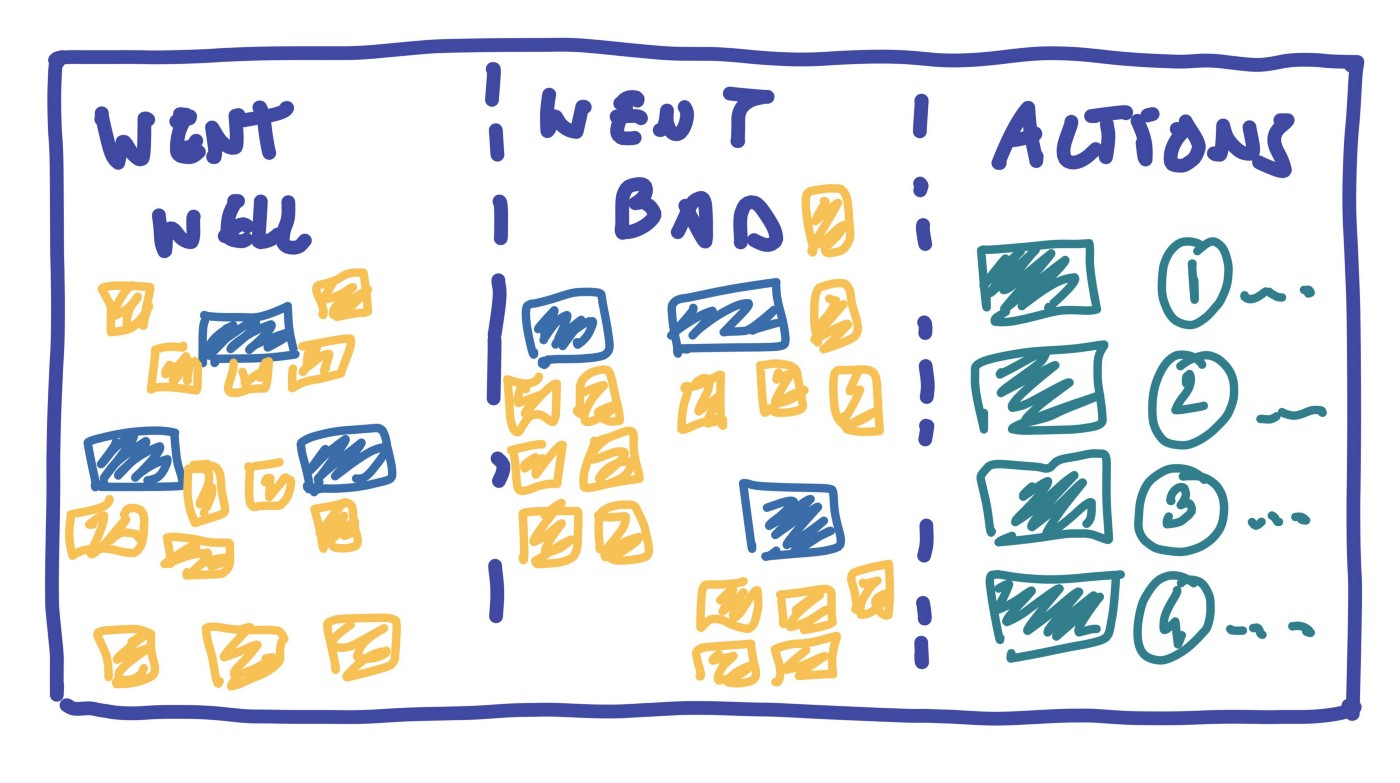 WENT
WELL
WENT
BAD
ACTIONS
1
2
3
4